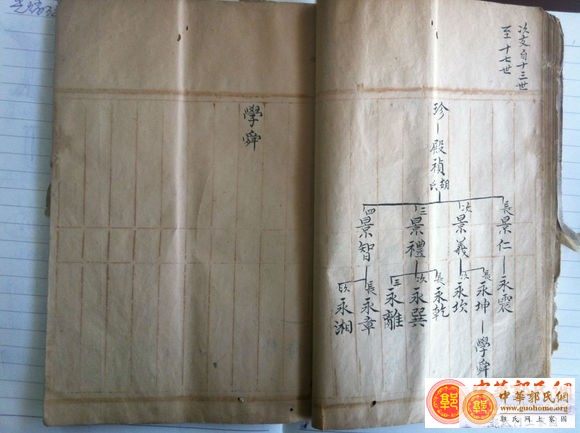 次支自十三世
至十七世
珍
殿禎
胡氏
長景仁
次景義
三景禮
四景智
永震
長永坤
次永坎
長永乾
次永巽
三永離
長永章
次永湘
學舜
學舜
中華郭氏網
中華郭氏網
www.guohome.org
郭氏網上家園